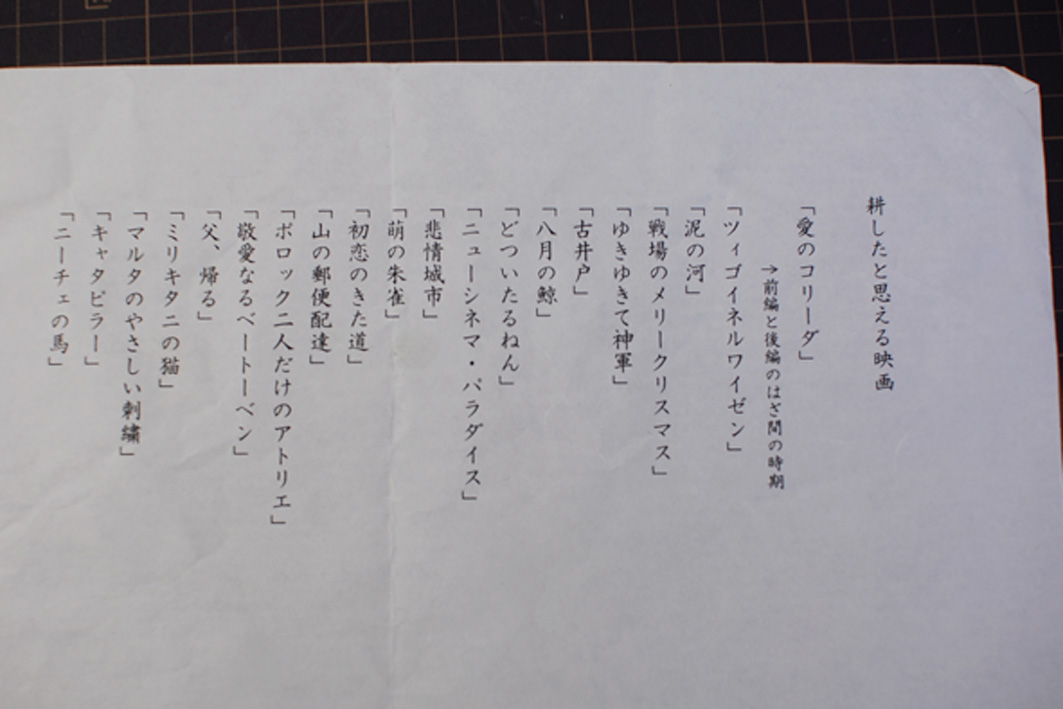 耕したと思える映画
「愛のコリーダ」
→前編と後編のはざ間の時期
「ツィゴイネルワイゼン」
「泥の河」
「戦場のメリークリスマス」
「ゆきゆきて神軍」
「古井戸」
「八月の鯨」
「どついたるねん」
「ニューシネマ・パラダイス」
「悲情城市」
「萌の朱雀」
「初恋のきた道」
「山の郵便配達」
「ポロック二人だけのアトリエ」
「敬愛なるベートーベン」
「父、帰る」
「ミリキタニの猫」
「マルタのやさしい刺繍」
「キャタピラー」
「ニーチェの馬」